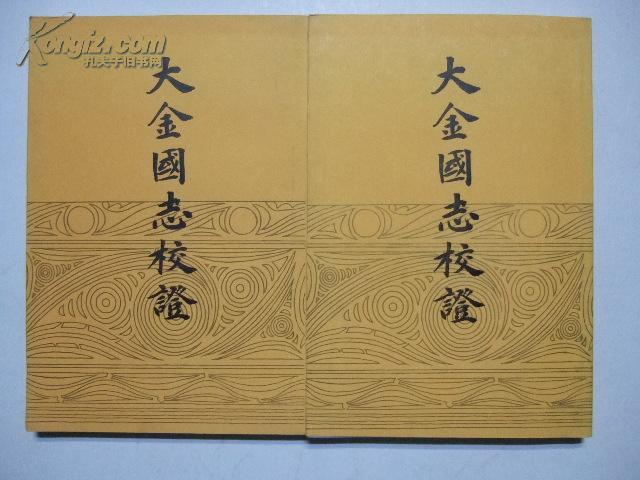 Kongfz.com
孔夫子旧书网
大金國志校證
大金國志校證